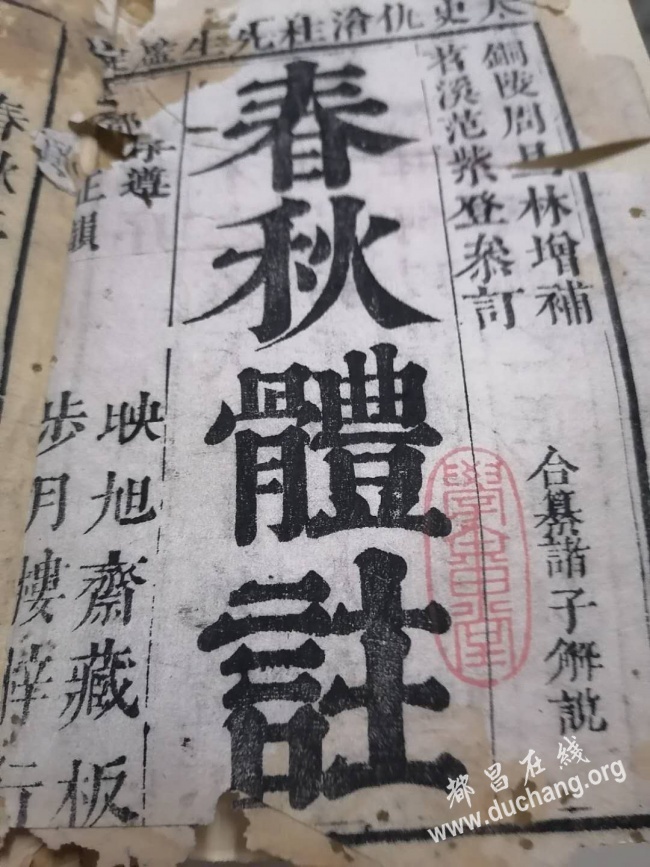 太史仇滄柱先生鑒定
銅陵周旦林增補
苕溪范紫登叅訂
合纂諸子解說
春秋體註
遵
正韻
映旭齋藏板
步月樓梓行
春秋
都昌在线
www.duchang.org